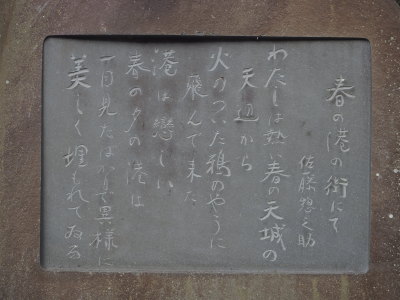 春の港の街にて
佐藤惣之助
わたしは熱春の天城の
天辺から
火のついた鴉のやうに
飛んで来た
港は戀しい
春の夕の港は
一目見たばかりで異様に
美しく埋もれてゐる